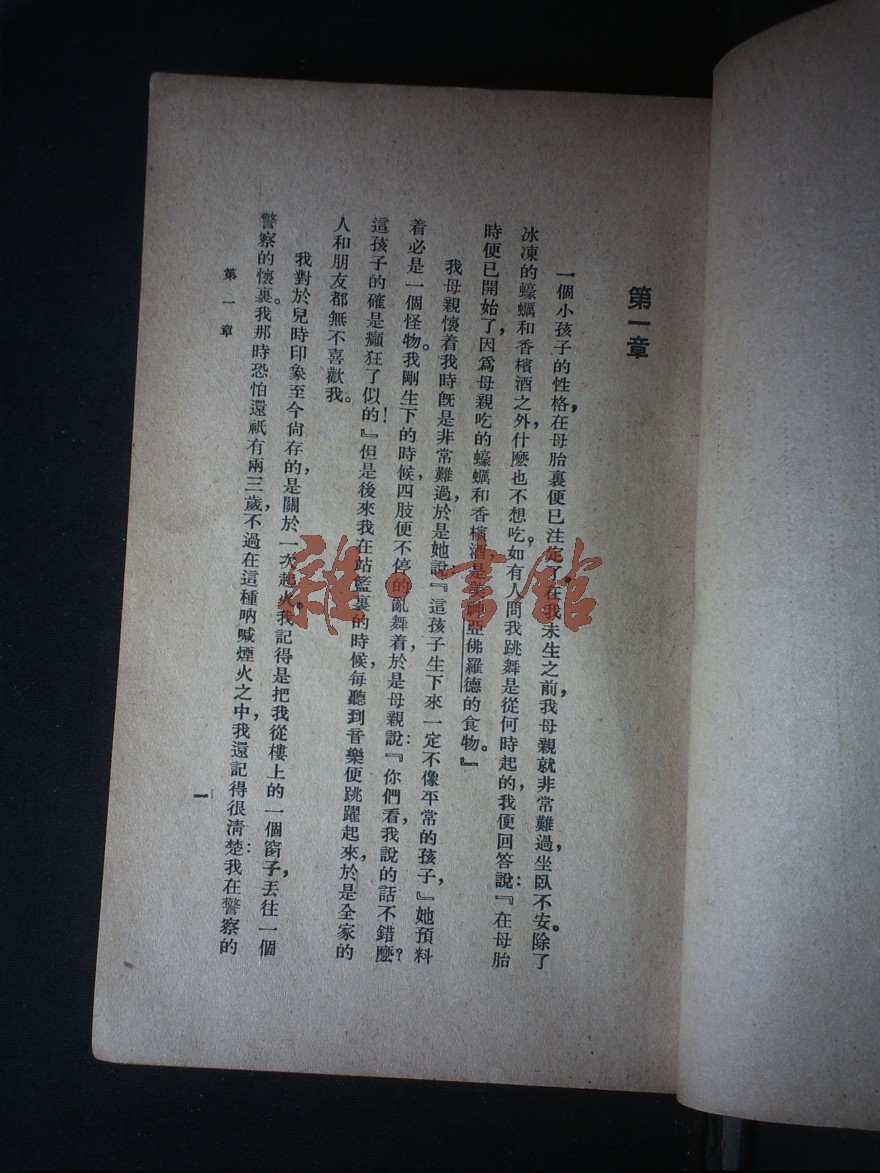 第一章
一個小孩子的性格，在母胎裏便已注定了。在我未生之前，我母親就非常難過，坐臥不安。除了
冰凍的蠔蠣和香檳酒之外，什麼也不想吃。如有人問我跳舞是從何時起的，我便回答說：『在母胎
時便已開始了，因爲母親吃的蠔蠣和香檳酒，是美神亞佛羅德的食物。』
我母親懷着我時旣是非常難過，於是她說『這孩子生下來一定不像平常的孩子，』她預料
着必是一個怪物。我剛生下的時候，四肢便不停的亂舞着，於是母親說：『你們看，我說的話不錯麼？
這孩子的確是癲狂了似的！』但是後來我在站籃裏的時候，每聽到音樂便跳躍起來，於是全家的
人和朋友都無不喜歡我。
我對於兒時印象至今尙存的，是關於一次起火。我記得是把我從樓上的一個窗子，丟往一個
警察的懷裏。我那時恐怕還祇有兩三歲，不過在這種吶喊煙火之中，我還記得很淸楚：我在警察的
第一章
一
雜·書館